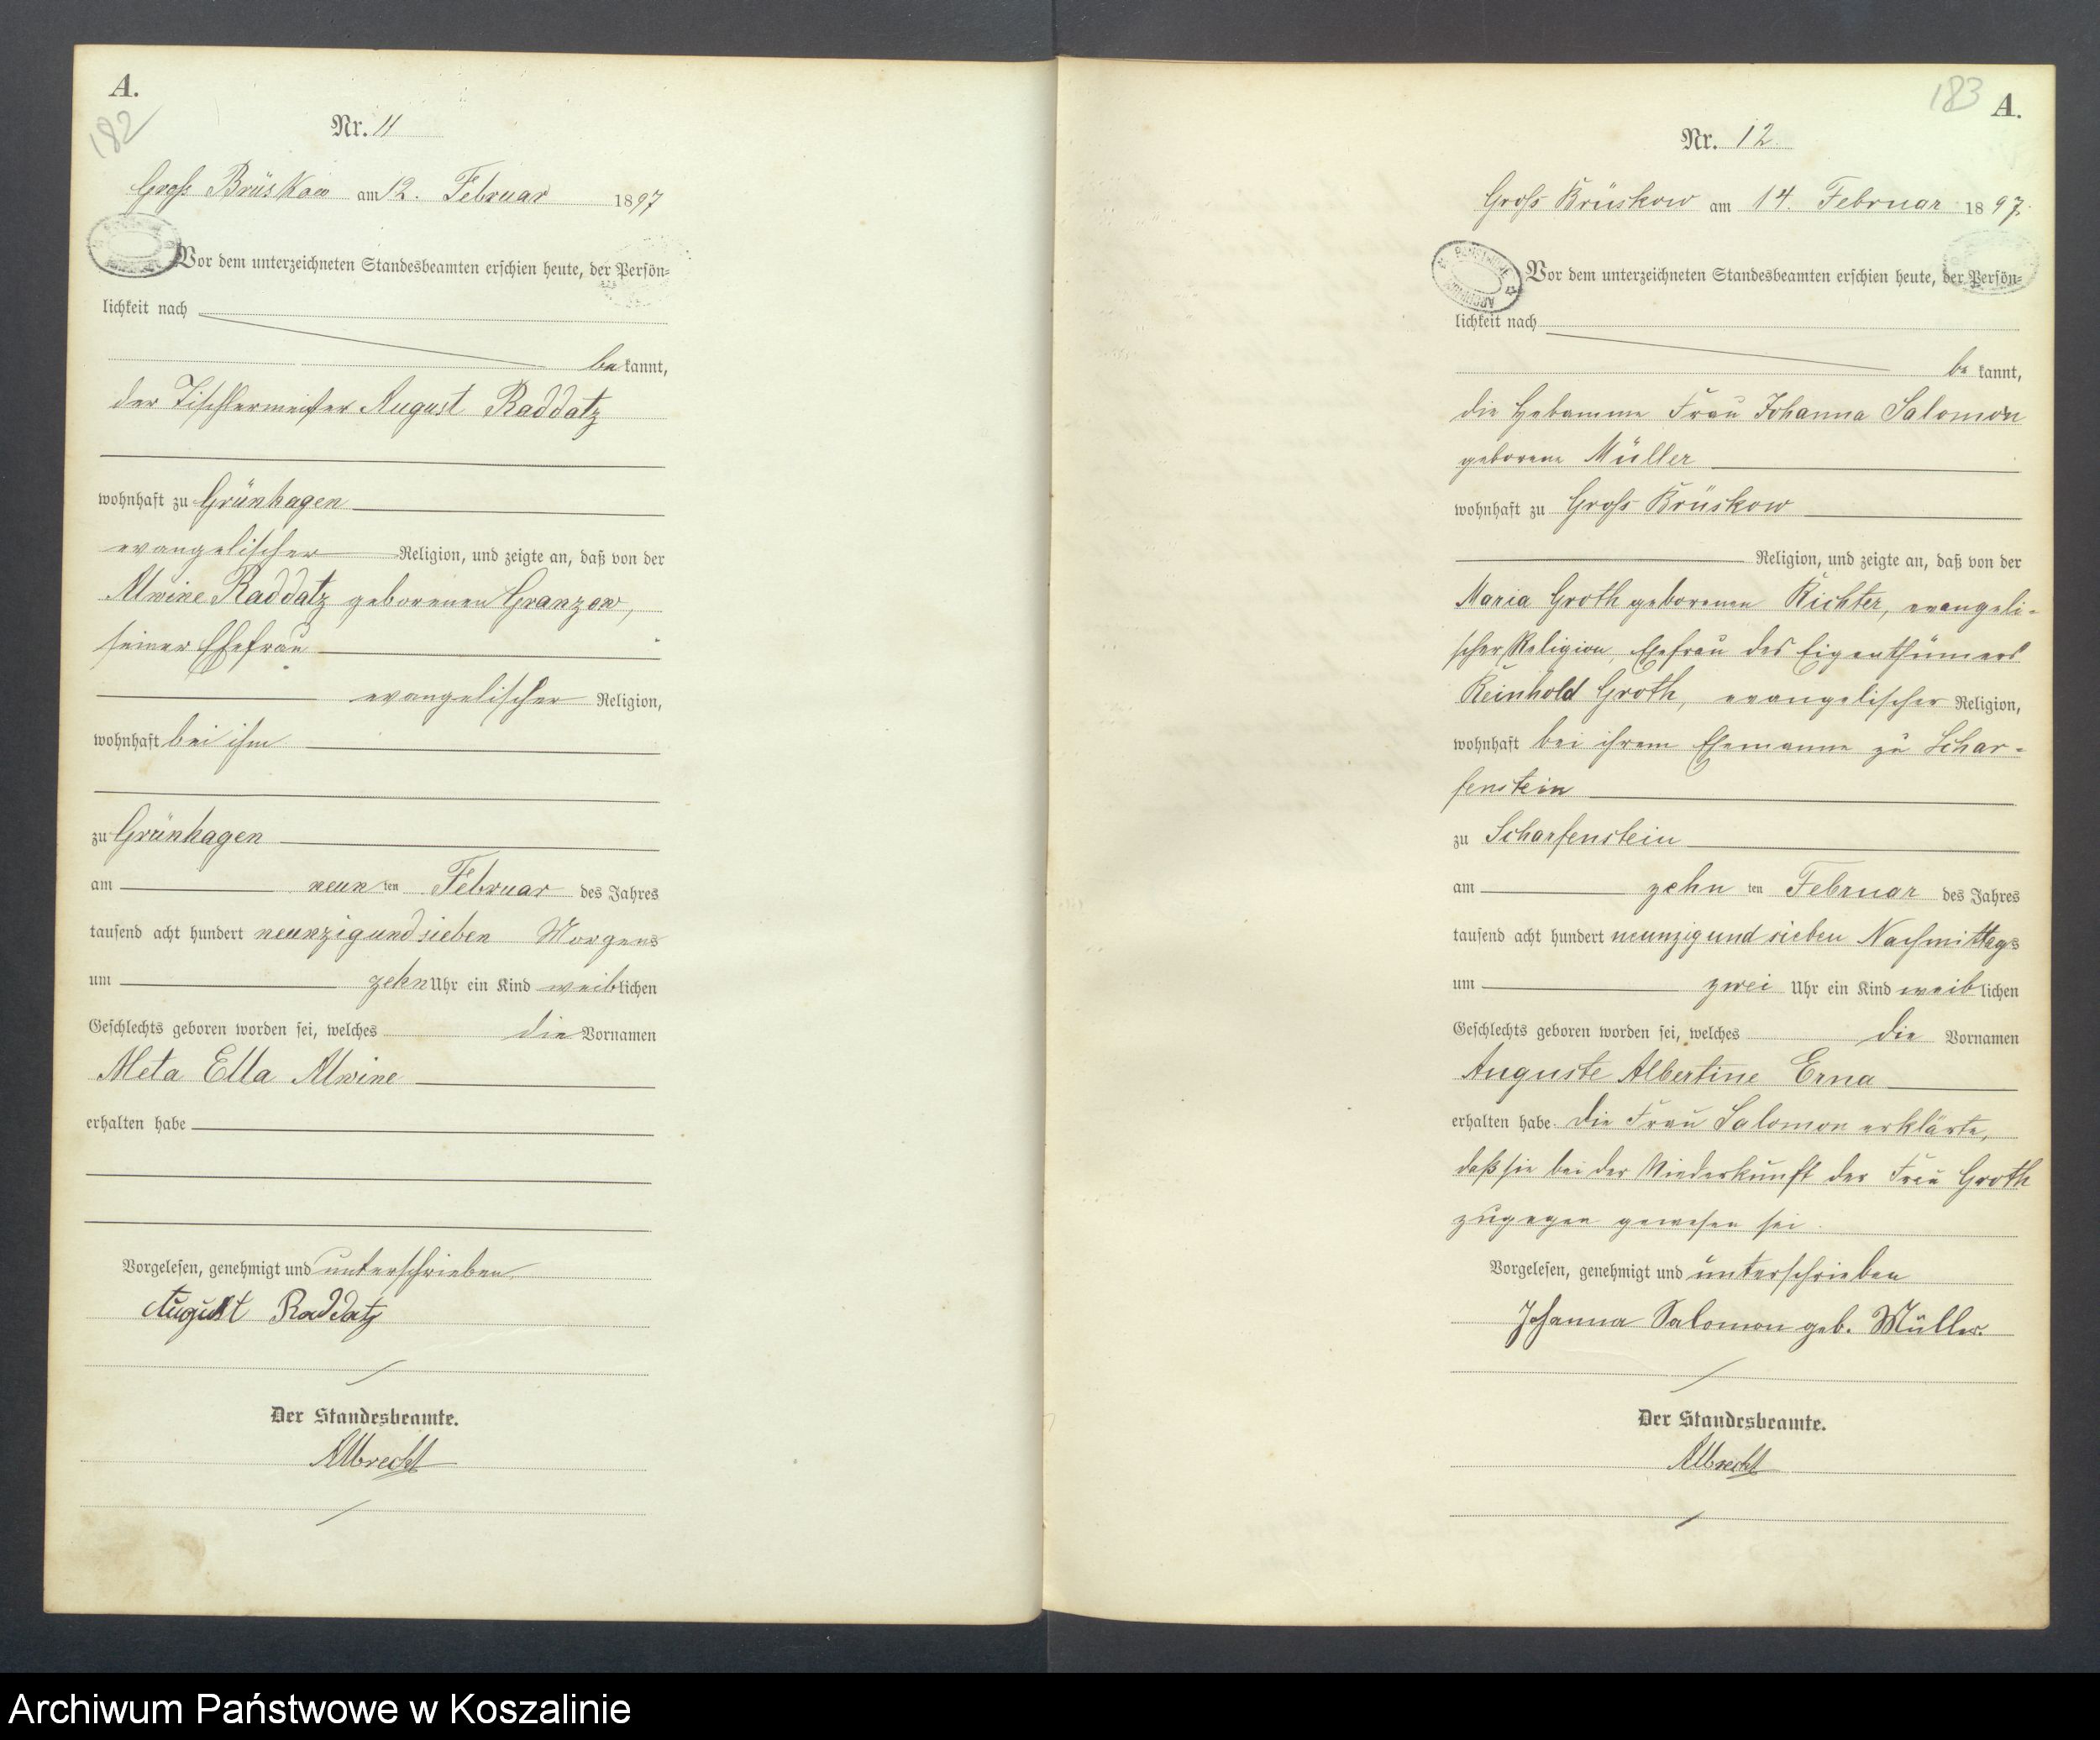 A.
182
Nr. 11
Groß Brüskow am 12. Februar 1897
Vor dem unterzeichneten Standesbeamten erschien heute, der Persön=
lichkeit nach
be kannt,
der Tischlermeister August Raddatz
wohnhaft zu Grünhagen
evangelischer Religion, und zeigte an, daß von der
Alwine Raddatz geborenen Granzow,
seiner Ehefrau
evangelischer Religion,
wohnhaft bei ihm
zu Grünhagen
am neun ten Februar des Jahres
tausend acht hundert neunzig und sieben Morgens
um zehn Uhr ein Kind weiblichen
Geschlechts geboren worden sei, welches die Vornamen
Meta Ella Alwine
erhalten habe
Vorgelesen, genehmigt und unterschrieben
August Raddatz
Der Standesbeamte.
Albrecht
183
A.
Nr. 12
Groß Brüskow am 14. Februar 1897.
Vor dem unterzeichneten Standesbeamten erschien heute, der Persön=
lichkeit nach
be kannt,
die Hebamme Frau Johanna Salomon
geborene Müller
wohnhaft zu Groß Brüskow
Religion, und zeigte an, daß von der
Maria Groth geborenen Richter, evangeli-
scher Religion, Ehefrau des Eigenthümers
Reinhold Groth, evangelischer Religion,
wohnhaft bei ihrem Ehemanne zu Schar-
fenstein
zu Scharfenstein
am zehn ten Februar des Jahres
tausend acht hundert neunzig und sieben Nachmittags
um zwei Uhr ein Kind weiblichen
Geschlechts geboren worden sei, welches die Vornamen
Auguste Albertine Erna
erhalten habe. Die Frau Salomon erklärte,
daß sie bei der Niederkunft der Frau Groth
zugegen gewesen sei.
Vorgelesen, genehmigt und unterschrieben
Johanna Salomon geb. Müller.
Der Standesbeamte.
Albrecht
Archiwum Państwowe w Koszalinie